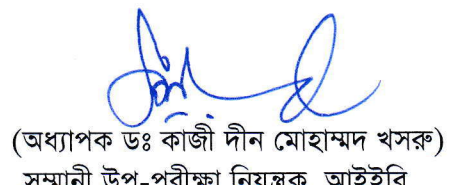 (অধ্যাপক ডঃ কাজী দীন মোহাম্মদ খসরু)
সম্মানী উপ-পরীক্ষা নিয়ন্ত্রক, আইইবি